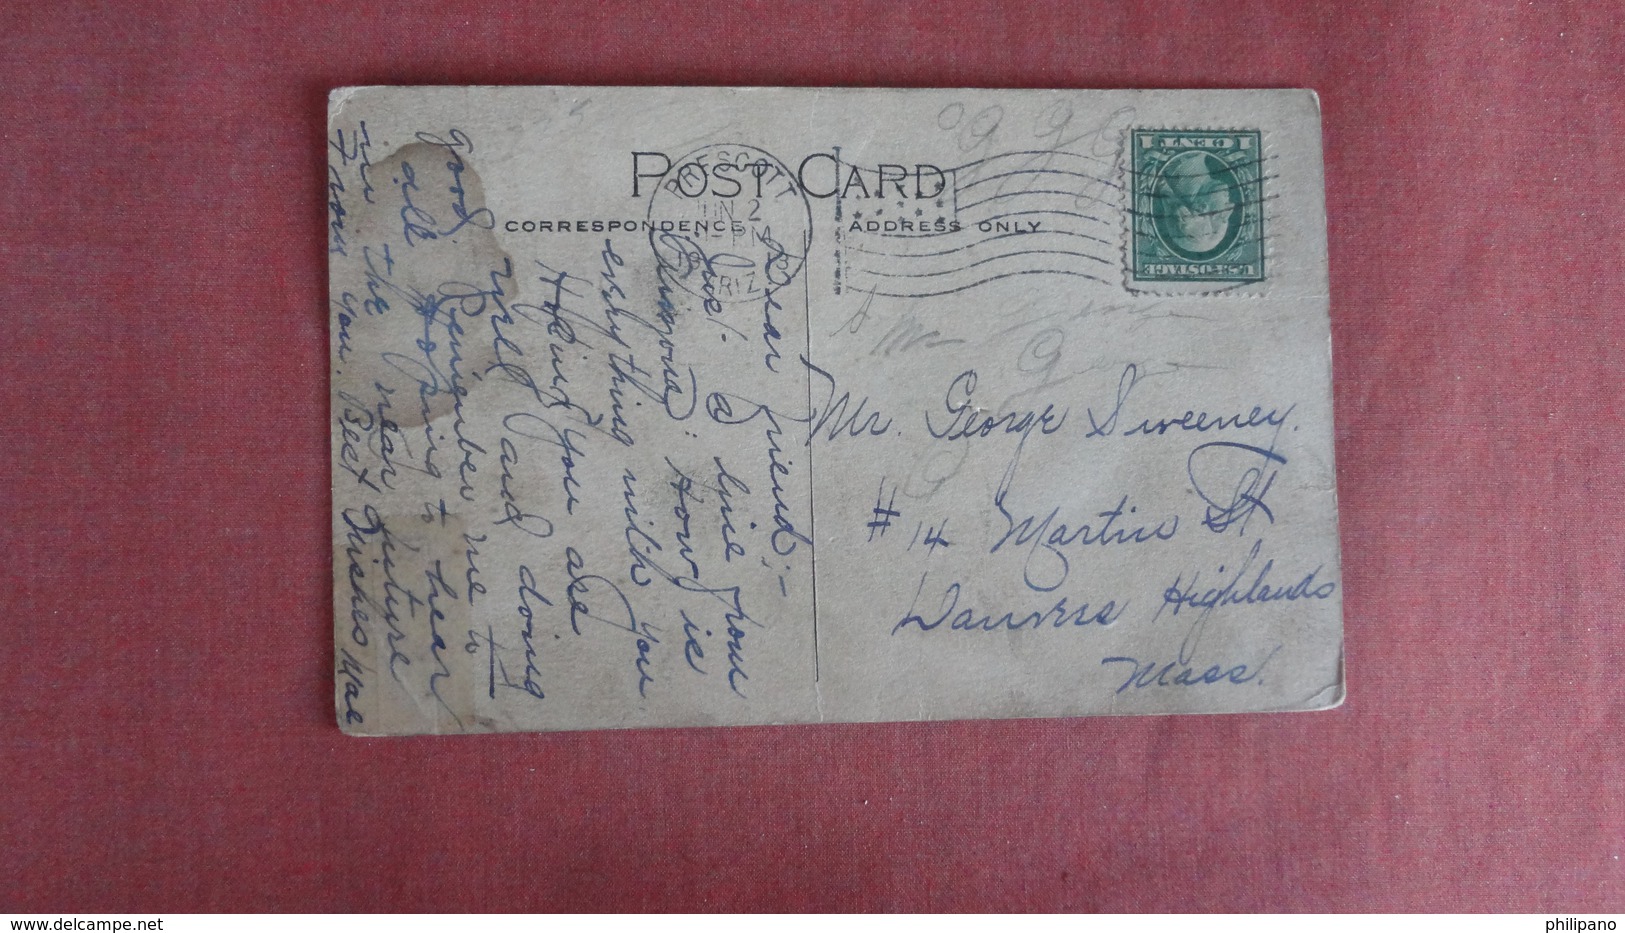 POST CARD
CORRESPONDENCE
ADDRESS ONLY
PRESCOTT
JUN 2
PM
ARIZ
1 CENT 1
U.S. POSTAGE
Dear friend;-
Just a line from
Arizona: How is
everything with you.
Hoping you are
well and doing
good. Remember me to
all Hoping to hear
in the near future
From you. Best Wishes Mae
Mr. George Sweeney.
#14 Martin St
Danvers Highlands
Mass.
philipano